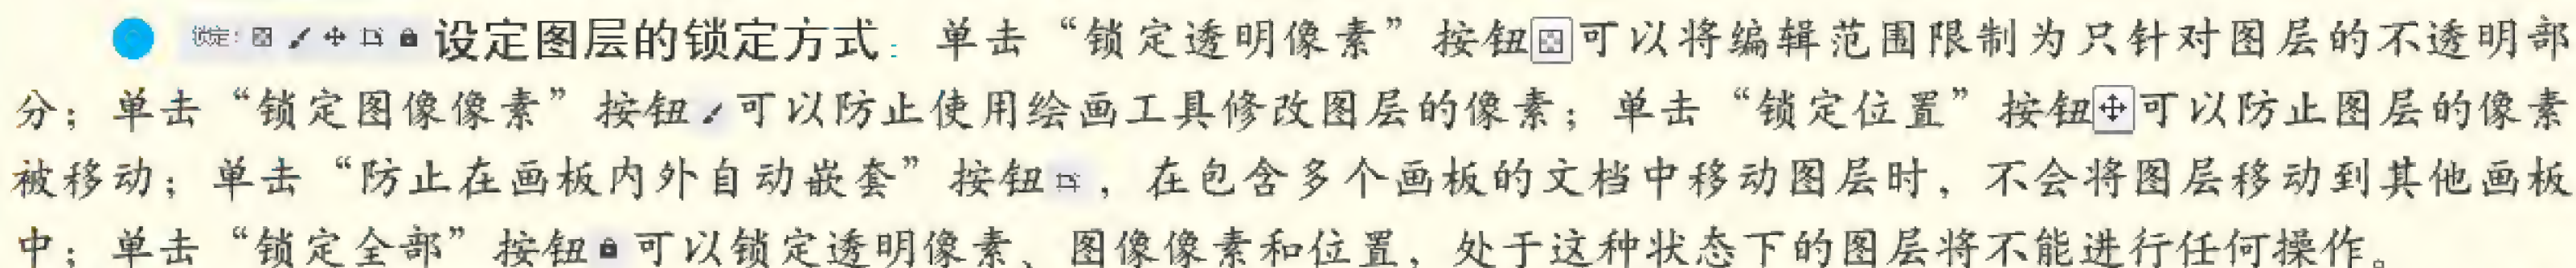 锁定: 设定图层的锁定方式：单击“锁定透明像素”按钮可以将编辑范围限制为只针对图层的不透明部
分；单击“锁定图像像素”按钮可以防止使用绘画工具修改图层的像素；单击“锁定位置”按钮可以防止图层的像素
被移动；单击“防止在画板内外自动嵌套”按钮，在包含多个画板的文档中移动图层时，不会将图层移动到其他画板
中；单击“锁定全部”按钮可以锁定透明像素、图像像素和位置，处于这种状态下的图层将不能进行任何操作。